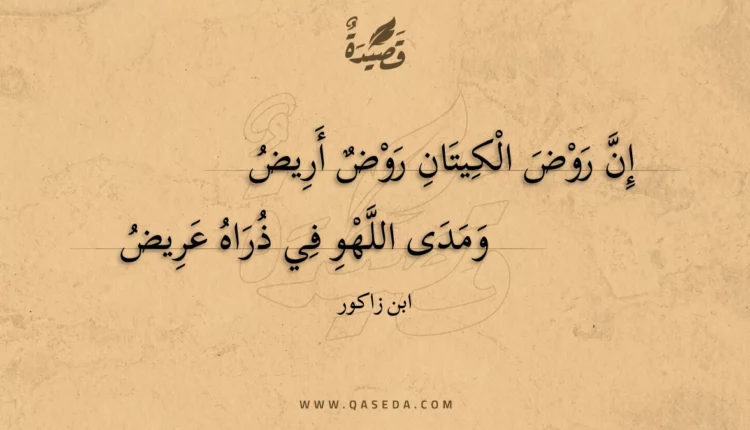 قَصِيْدَةٌ
إِنَّ رَوْضَ الْكِيتَانِ رَوْضٌ أَرِيضُ
وَمَدَى اللَّهْوِ فِي ذُرَاهُ عَرِيضُ
ابن زاكور
WWW.QASEDA.COM